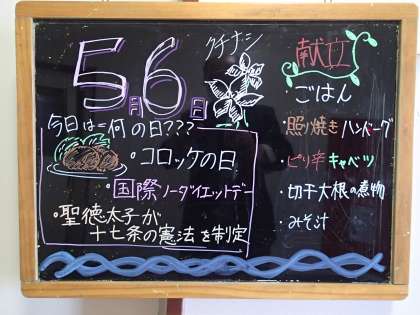 5月6日
クチナシ
今日は=何の日???
・コロッケの日
・国際ノーダイエットデー
・聖徳太子が
十七条の憲法を制定
献立
ごはん
・照り焼きハンバーグ
・ピリ辛キャベツ
・切干大根の煮物
・みそ汁